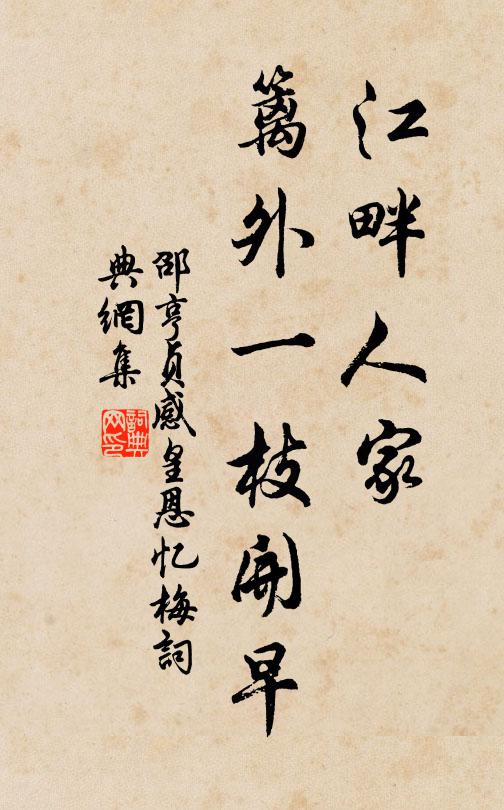 江畔人家
籬外一枝開早
邵亨貞感皇恩忆梅詞
典網集
詞典网印